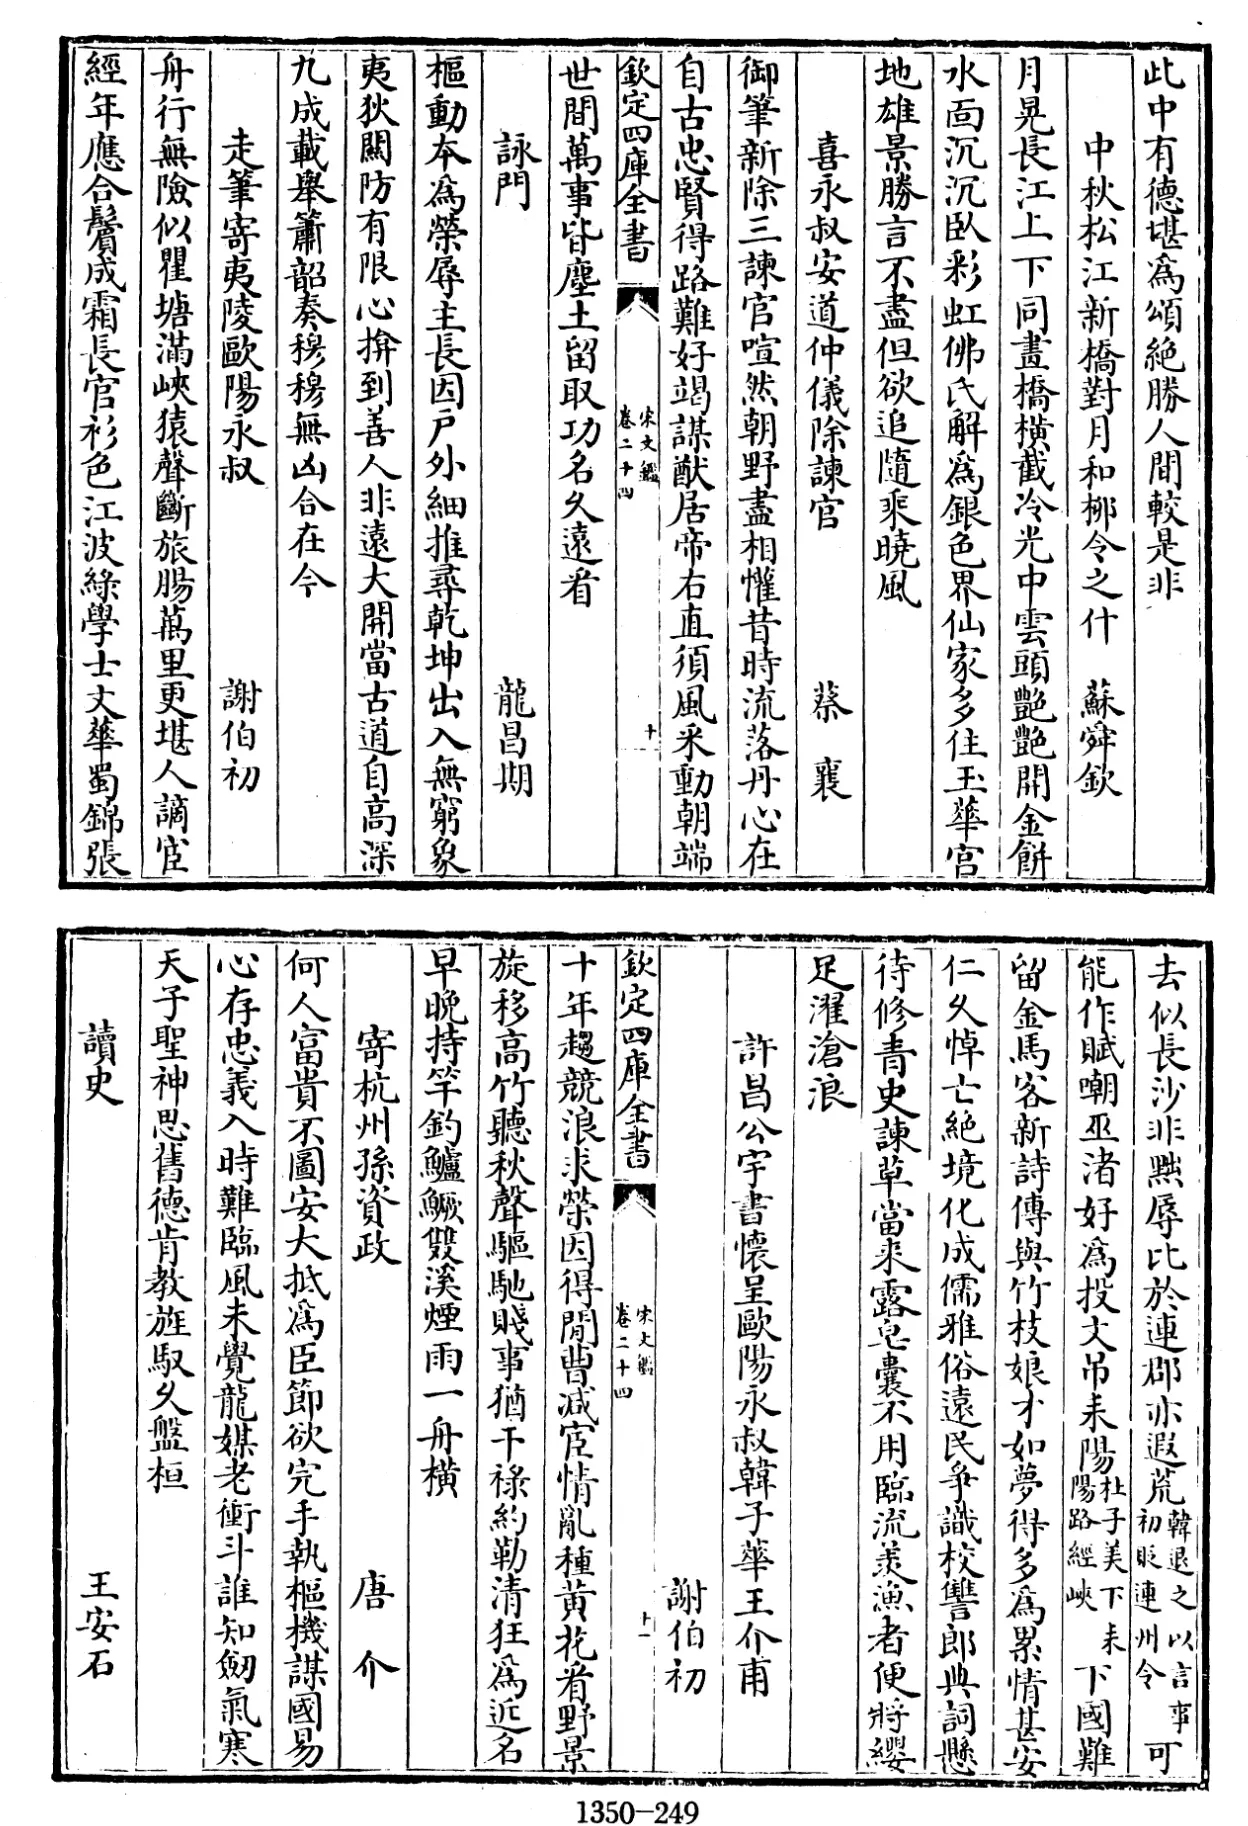 此中有德堪為頌絶勝人間較是非
中秋松江新橋對月和栁令之什　蘇舜欽
月晃長江上下同畫橋橫截冷光中雲頭艷艷開金餅
水面沉沉臥彩虹佛氏解為銀色界仙家多住玉華宫
地雄景勝言不盡但欲追隨乘曉風
喜永叔安道仲儀除諫官　蔡襄
御筆新除三諫官喧然朝野盡相懽昔時流落丹心在
自古忠賢得路難好竭謀猷居帝右直須風采動朝端
欽定四庫全書　宋文鑑　卷二十四　十
世間萬事皆塵土留取功名久遠看
詠門　龍昌期
樞動本為榮辱主長因户外細推尋乾坤出入無窮象
夷狄關防有限心揜到善人非遠大開當古道自高深
九成載舉簫韶奏穆穆無凶合在今
走筆寄夷陵歐陽永叔　謝伯初
舟行無險似瞿塘滿峽猿聲斷旅腸萬里更堪人謫宦
經年應合鬢成霜長官衫色江波綠學士文華蜀錦張
去似長沙非黜辱比於連郡亦遐荒韓退之以言事初貶連州令可
能作賦嘲巫渚好為投文吊耒陽杜子美下耒陽路經峽下國難
留金馬客新詩傳與竹枝娘才如夢得多為累情甚安
仁久悼亡絶境化成儒雅俗遠民爭識校讐郎典詞懸
待修青史諫草當來露皂囊不用臨流羨漁者便將纓
足濯滄浪
許昌公宇書懷呈歐陽永叔韓子華王介甫
謝伯初
欽定四庫全書　宋文鑑　卷二十四　十一
十年趨競浪求榮因得閒曹減宦情亂種黄花看野景
旋移高竹聽秋聲驅馳賤事猶干祿約勒清狂為近名
早晚持竿釣鱸鱖雙溪煙雨一舟橫
寄杭州孫資政　唐介
何人富貴不圖安大抵為臣節欲完手執樞機謀國易
心存忠義入時難臨風未覺龍媒老衝斗誰知劒氣寒
天子聖神思舊德肯教旌馭久盤桓
讀史　王安石
1350—249